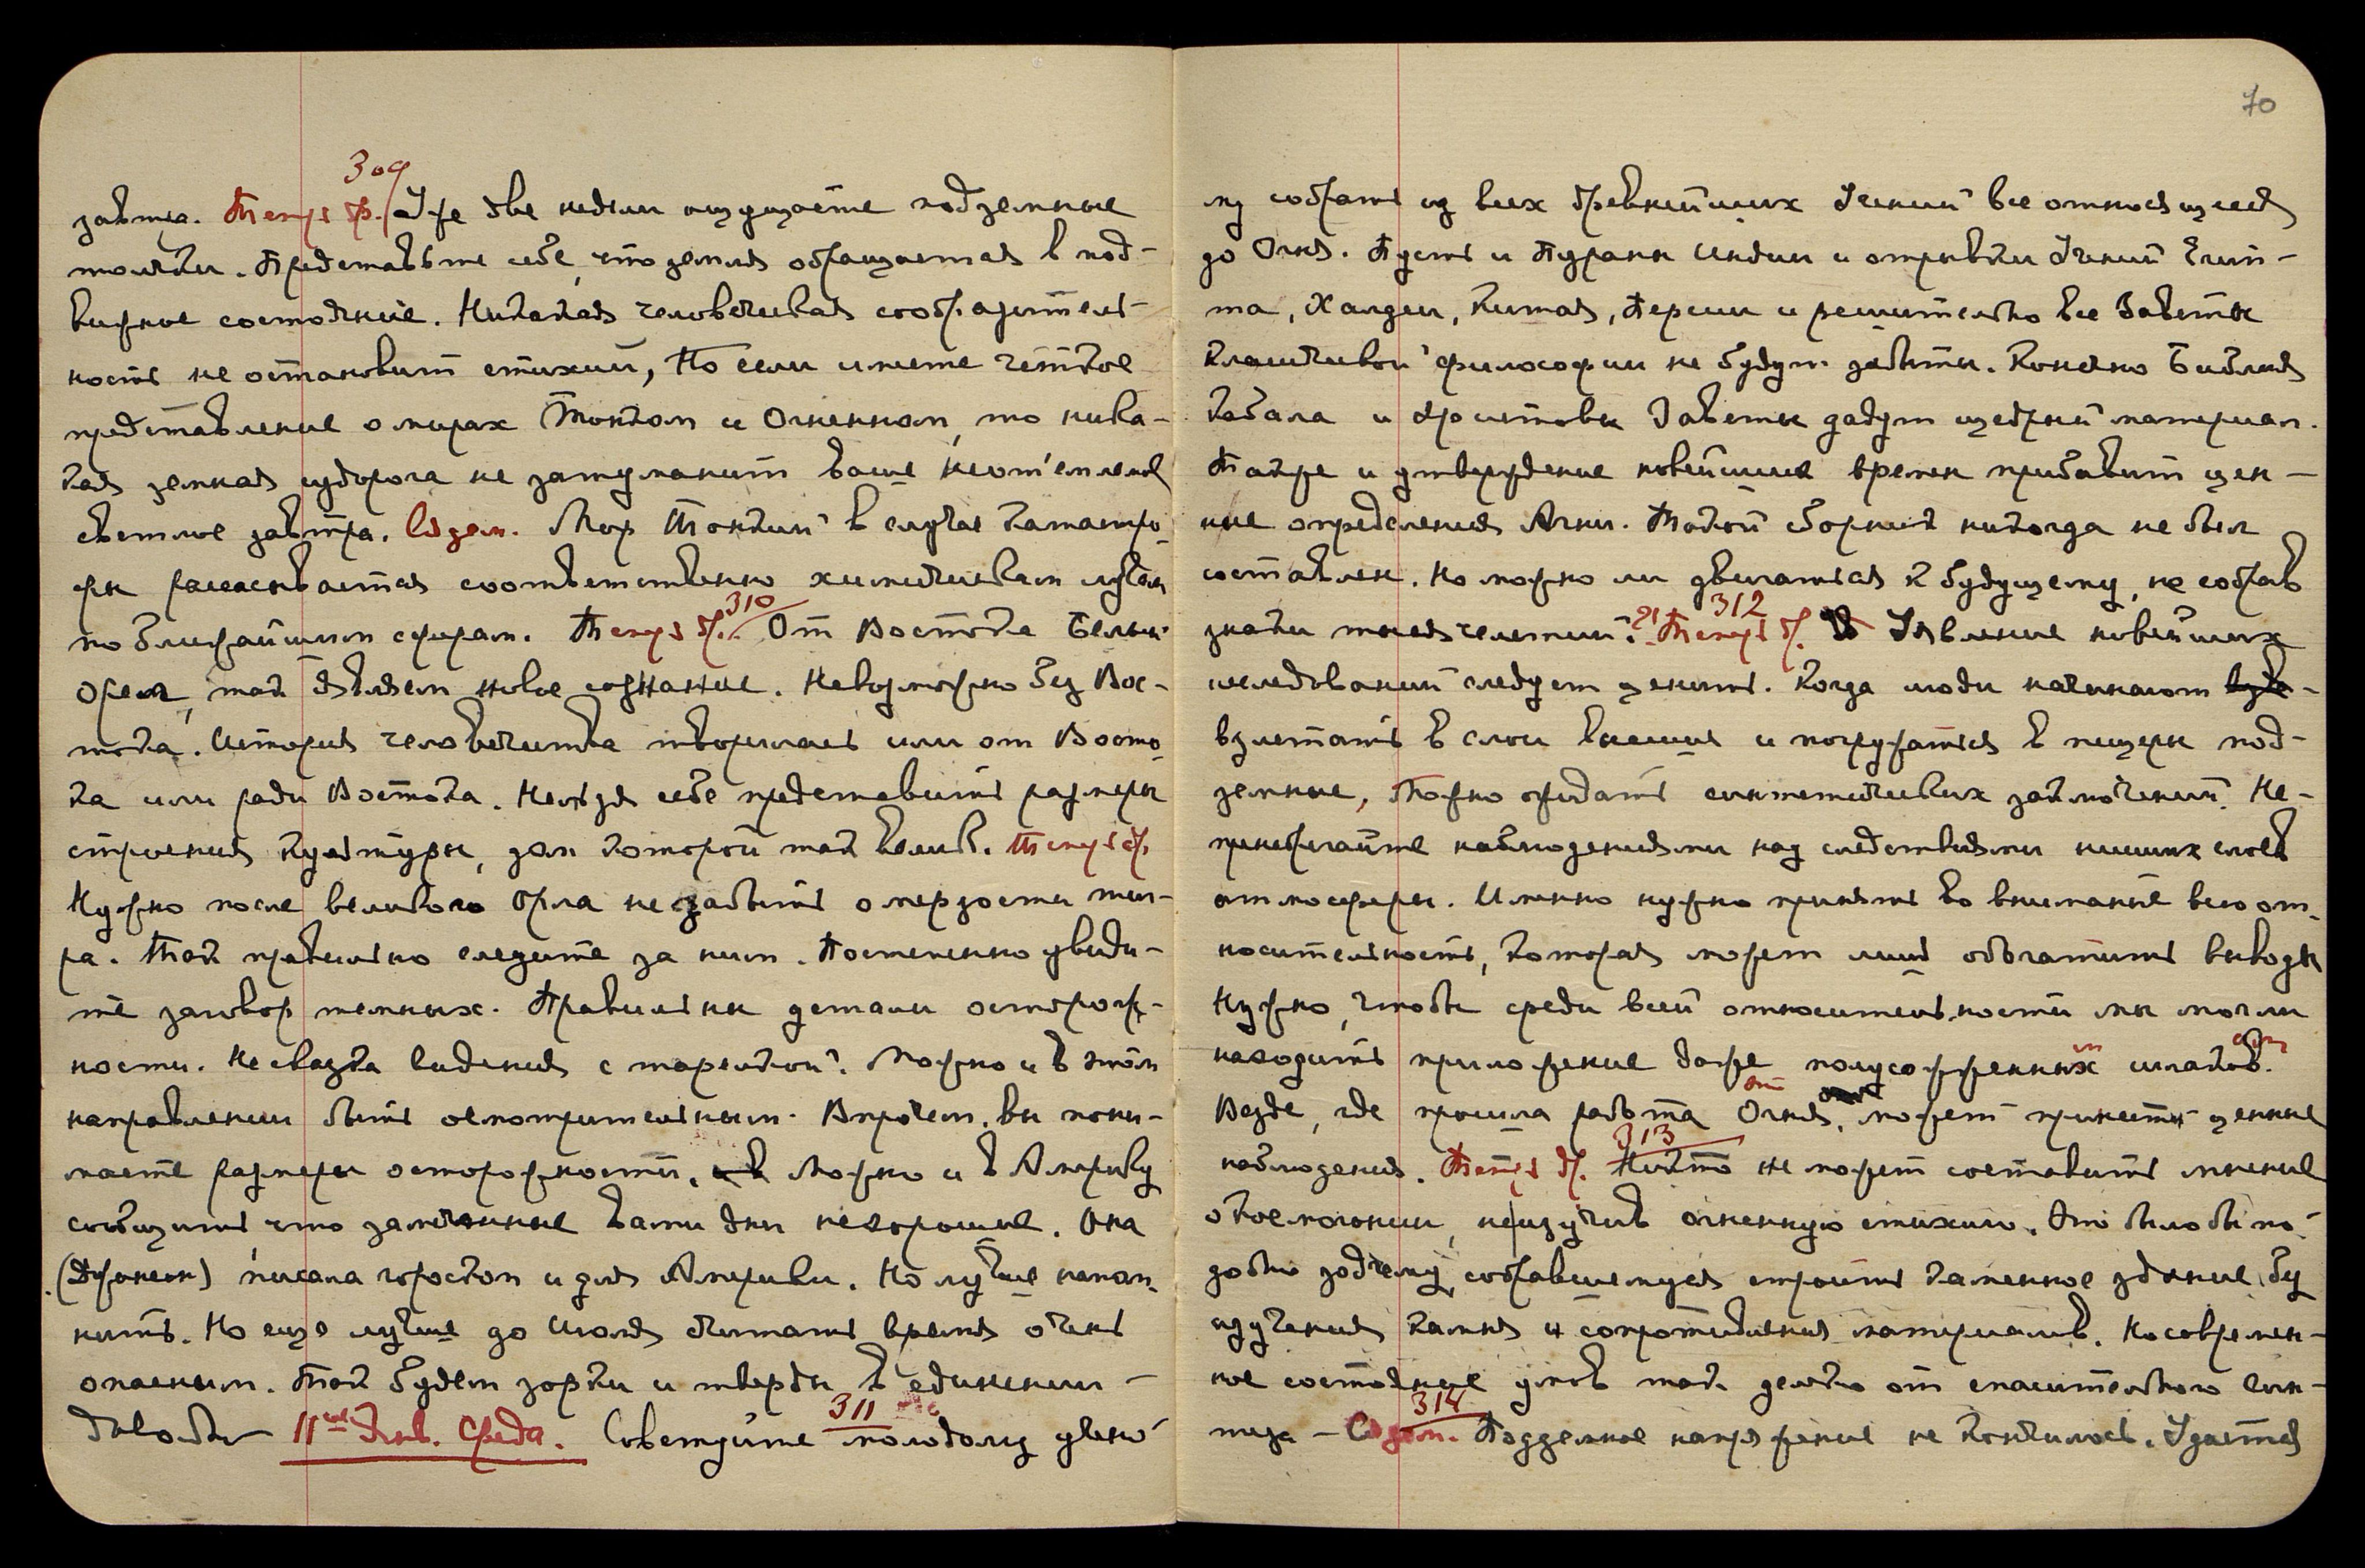 309
завтра. Теперь др. Уже две недели ощущаете подземные
толчки. Представьте себе, что земля обращается в под-
вижное состояние. Никакая человеческая сообразитель-
ность не остановит стихий, Но если имеете четкое
представление о мирах Тонком и Огненном, то ника-
кая земная судорога не затуманит ваше неотъемлемое
светлое завтра. Мир Тонкий в случае катастро-
фы рассасывается соответственно химическим лучам
310
по ближайшим сферам. Теперь др. От Востока Белый
Орел, так являем новое сознание. Невозможно без Вос-
тока. История человечества творилась или от Восто
ка или ради Востока. Нельзя себе представить размеры
строения культуры, дом которой так велик. Теперь др.
Нужно после великого Орла не забыть о мерзости тиг-
ра. Так правильно следите за ним. Постепенно увиди-
те заговор темных. Правильны детали осторож-
ности. Не сказка видения с тарелкой. Можно и в этом
направлении быть осмотрительным. Впрочем, вы пони-
маете размеры осторожности. Можно и в Америку
сообщить что замеченные вами дни нехорошие. Она
писала гороскоп и для Америки. Но лучше напом.
нить. Но еще лучше до Июля считать время очень
опасным. Так будем зорки и тверды в единении –
311
11ое Янв. Среда. Советуйте молодому учено
70
му собрать из всех древнейших Учений все относящееся
до Огня. Пусть и Пураны Индии и отрывки Учений Егип-
та, Халдеи, Китая, Персии и решительно все Заветы
классической философии не будут забыты. Конечно Библия
Кабала и Христовы Заветы дадут щедрый материал.
Также и утверждение новейшие времен прибавит цен-
ные определения Агни. Такой сборник никогда не был
составлен. Но можно ли двигаться к будущему, не собрав
312
знаки тысячелетий? Теперь др. Явление новейших
исследований следует ценить. Когда люди начинают
взлетать в слои высшие и погружаться в пещеры под-
земные, можно ожидать синтетических заключений. Не-
пренебрегайте наблюдениями над следствиями низших слоев
атмосферы. Именно нужно принять во внимание всю от-
носительность, которая может лишь обогатить выводы
Нужно, чтобы среди всей относительности мы могли
находить приложение даже полусожженных
Везде, где прошла работа Огня, может принести ценные
313
наблюдения. Теперь др. Никто не может составить мнение
о Космогонии, не изучив огненную стихию. Это было бы по-
добно зодчему, собравшемуся строить каменное здание, бз
изучения камня и сопротивления материалов. Но современ-
ное состояние умов так далеко от спасительного син-
314
теза – Поддельное напряжение не кончилось. Удается